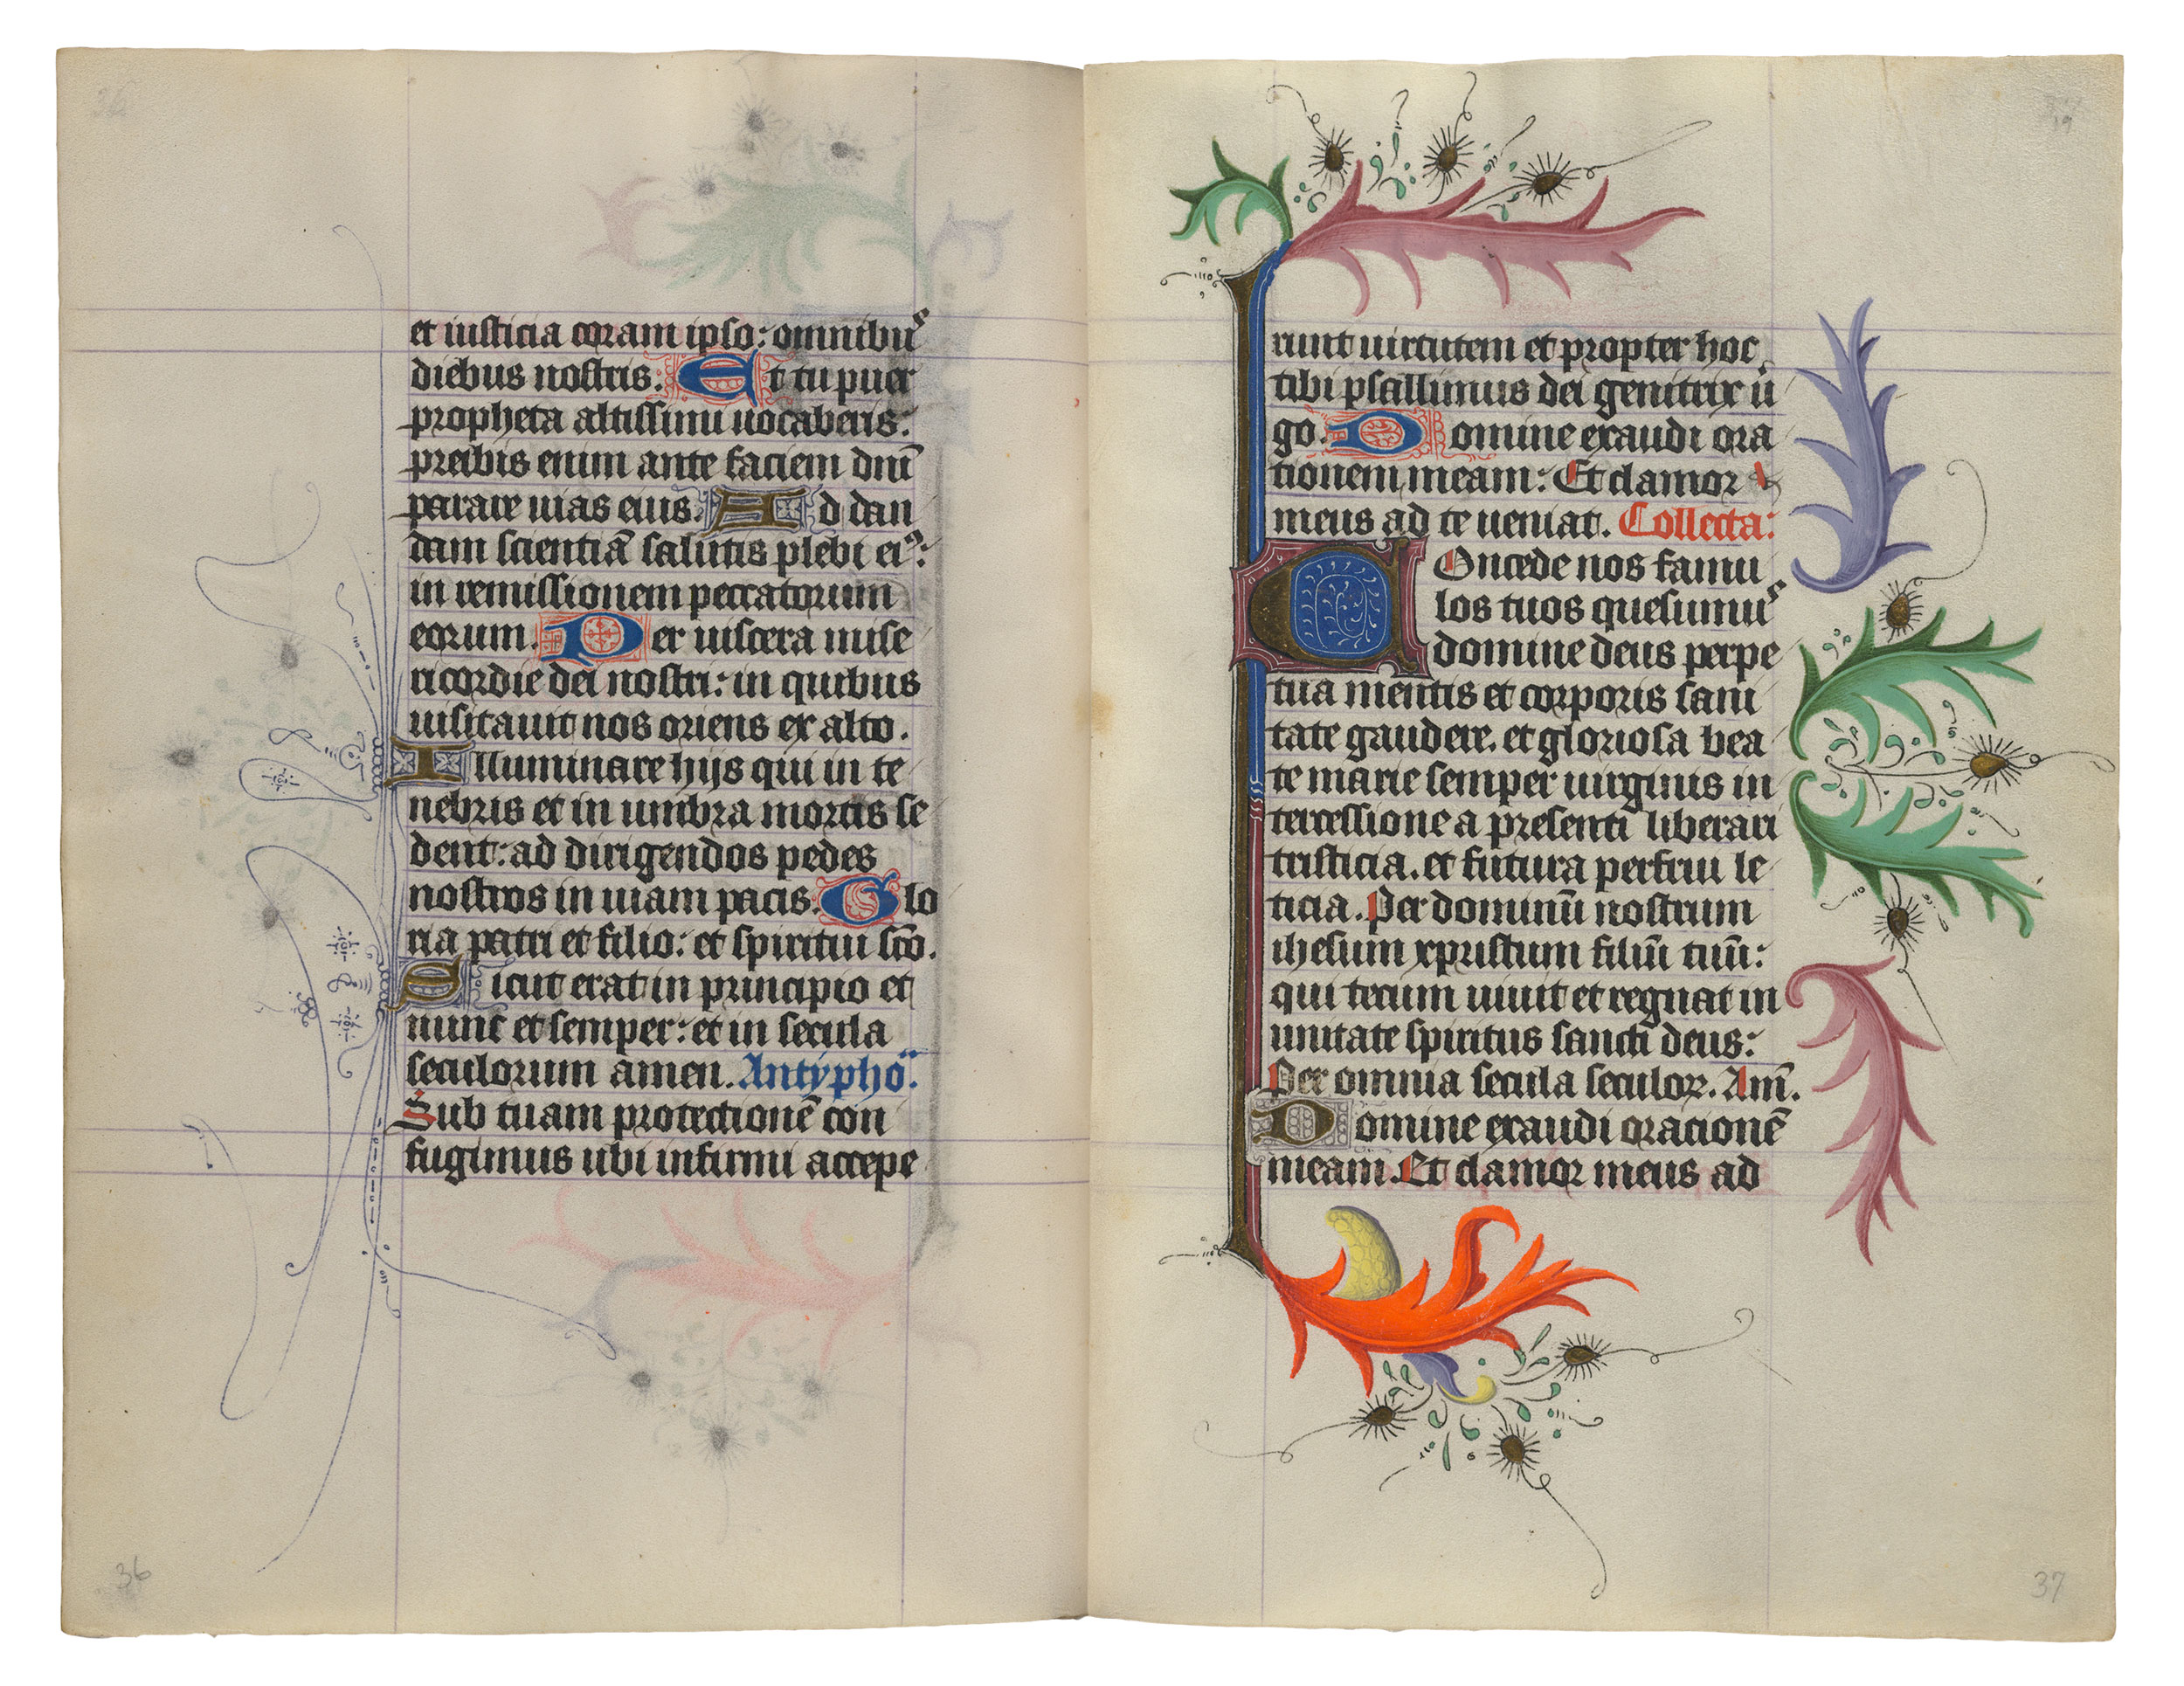 et iusticia coram ipso: omnibus
diebus nostris. Et tu puer
propheta altissimi uocaberis:
preibis enim ante faciem dnī
parare uias eius. Ad dan
dam scientiā salutis plebi ei9:
in remissionem peccatorum
eorum. Per uiscera mise
ricordie dei nostri: in quibus
uisitauit nos oriens ex alto.
Illuminare hijs qui in te
nebris et in umbra mortis se
dent: ad dirigendos pedes
nostros in uiam pacis. Glo
ria patri et filio: et spiritui sc̄o.
Sicut erat in principio et
nunc et semper: et in secula
seculorum amen. Antypho.
Sub tuam protectionē con
fugimus ubi infirmi accepe
36
runt uirtutem et propter hoc
tibi psallimus dei genitrix ui
go. Domine exaudi ora
tionem meam: Et clamor
meus ad te ueniat. Collecta:
Concede nos famu
los tuos quesumus
domine deus perpe
tua mentis et corporis sani
tate gaudere. et gloriosa bea
te marie semper uirginis in
tercessione a presenti liberari
tristicia. et futura perfrui le
ticia. Per dominū nostrum
ihesum xpristum filiū tuū:
qui tecum uiuit et regnat in
unitate spiritus sancti deus:
Per omnia secula seculoꝝ. Am̄.
Domine exaudi orationē
meam. Et clamor meus ad
37